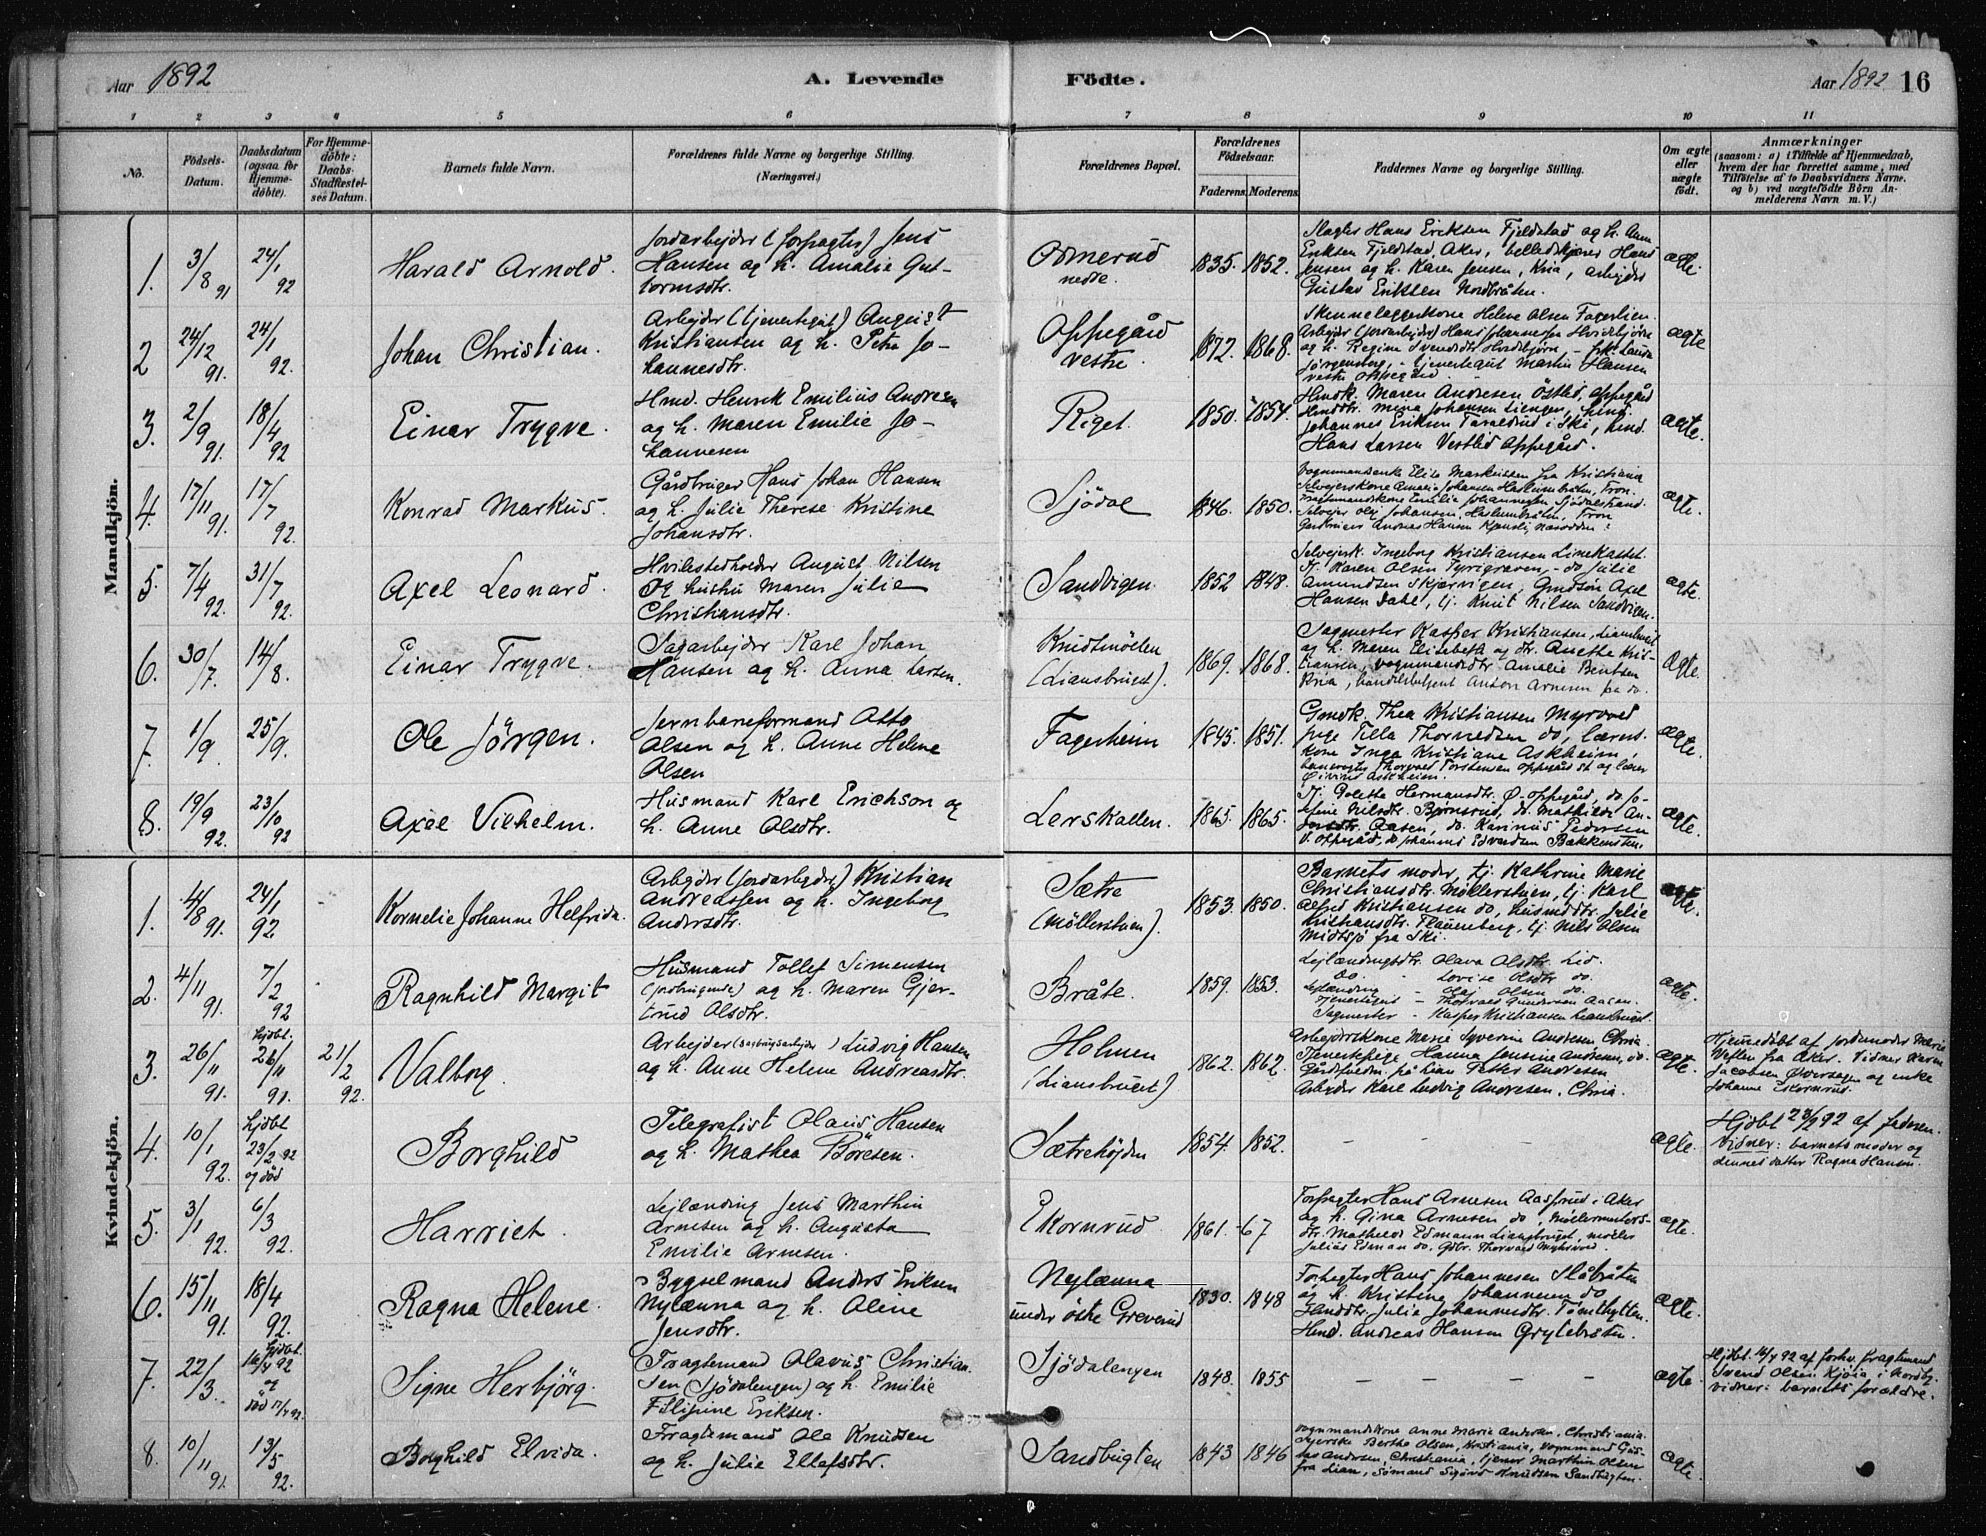 Aar 1892
A. Levende
Födte.
Aar 1892
16
1 2 3 4 5 6 7 8 9 10 11
No.
Födsels-
Datum.
Daabsdatum
(ogsaa for
Hjemme-
döbte).
For Hjemme-
döbte:
Daabs-
Stadfæstel-
ses Datum.
Barnets fulde Navn.
Forældrenes fulde Navne og borgerlige Stilling.
(Næringsvei.)
Forældrenes Bopæl.
Forældrenes
Födselsaar.
Faderens. Moderens.
Faddernes Navne og borgerlige Stilling.
Om ægte
eller
uægte
födt.
Anmærkninger
(saasom: a) i Tilfælde af Hjemmedaab,
hvem der har forrettet samme, med
Tilföielse af to Daabsvidners Navne,
og b) ved uægtefödte Börn An-
melderens Navn m. V.)
Mandkjön.
1. 3/8 91 24/1 92
Harald Arnold.
Jordarbejder (forpagter) Jens
Hansen og h. Amalie Gut-
tormsdtr.
Ormerud
nedre.
1835. 1852.
Slagter Hans Eriksen Fjeldstad og h.
Eriksen Fjeldstad, Aker, billedskjærer Hans
Jensen og h. Karen Jensen, Kria, arbejder
Gustav Eriksen Nordbråten.
ægte.
2 24/12 91. 24/1 92.
Johan Christian.
Arbejder (tjenertegut) August
Kristiansen og h. Petra Jo-
hannesdtr.
Oppegård
vestre.
1872. 1868.
Skinnelæggerkone Helene Olsen Fagerlien.
Arbejder (jordarbejder) Hans Johannesen Hvidebjørn
og h. Regine Svendsdtr Hvidebjørn
Jörgensberg, - tjenertegut Martin Hansen
vestre Oppegård.
ægte
3. 2/9 91. 18/4 92
Einar Trygve.
Hmd. Henrik Emilius Andresen
og h. Maren Emilie Jo-
hannesen
Riget.
1850. 1854.
Hmdk. Maren Andresen Östlid, Oppegård
Hmddtr. Mina Johansen Liengen, hmd.
Johannes Eriksen Taraldrud i Ski, hmd.
Hans Larsen Vestlid Oppegård.
ægte.
4. 17/11 91. 17/7 92.
Konrad Markus.
Gårdbruger Hans Johan Hansen
og h. Julie Therese Kristine
Johansdtr.
Sjödal
1846. 1850.
Vognmandsenke Elise Markussen fra Kristiania
Selvejerkone Amalie Johansen Haslumbråten, Fron.
Fragtmandskone Emilie Johannesen Sjödalstrand.
Selvejer Olaf Johansen, Haslumbråten, Fron
Andreas Hansen
ægte.
5 7/4 92. 31/7 92.
Axel Leonard.
Hvilestedholder August Nilsen
og hustru Maren Julie
Christiansdtr.
Sandvigen
1852 1848.
Selvejerk. Ingeborg Kristiansen Linekastet.
Tj. Karen Olsen Tyrigraven, - do Julie
Amundsen Skjærvigen, Gmdsön Axel
Hansen Dahl, tj. Knut Nilsen Sandvigen.
ægte.
6. 30/7. 14/8.
Einar Trygve.
Sagarbejder Karl Johan
Hansen og h. Anna Larsen.
Knudtmöllen
(Liansbruget).
1869. 1868.
Sagmester Kasper Kristiansen, Liansbruget
og h. Maren Elisabeth og dtr. Anethe Kris-
tiansen, vognmandsdtr Amalie Bentsen
Kria, handelsbetjent Anton Arnesen fra do.
ægte.
7. 1/9. 25/9.
Ole Jörgen.
Jernbaneformand Otto
Olsen og h. Anne Helene
Olsen
Fagerheim
1845. 1851.
Gmdk. Thea Kristiansen Myrvold
pige Tilla Thorvedsen do, lærer-
kone Inga Kristiane Askheim,
banevogter Thorvald Torstensen Oppegård st og lærer
Øivind Askheim.
ægte.
8. 19/9 92. 23/10 92
Axel Vilhelm.
Husmand Karl Erichson og
h. Anne Olsdtr.
Lerskallen.
1865. 1865.
Tj. Golette Hermansdtr. Ø. Oppegård, do Jo-
sefine Nilsdtr. Bjørnsrud, do Mathilde An-
dersdtr. Aasen, do. Karinus Pedersen
V. Oppegård, do Johannes Edvardsen Bakkensten.
ægte.
Kvindekjön.
1. 4/8 91. 24/1 92.
Kornelie Johanne Helfrida.
Arbejder (jordarbejder) Kristian
Andreassen og h. Ingeborg
Andersdtr.
Sætre
(Möllerstuen).
1853. 1850.
Barnets moder, tj. Kathrine Marie
Christiansdtr. Möllerstuen, tj. Karl
Alfred Kristiansen do, husmddtr. Julie
Kristiansdtr. Flauenberg, tj. Nils Olsen
Midtsjö fra Ski.
ægte.
2. 4/11 91. 7/2 92
Ragnhild Margit
Husmand Tollef Simensen
(jordbrugende) og h. Maren Gjer-
trud Olsdtr.
Bråte.
1859. 1853.
Lejlændingsdtr. Olava Olsdtr. Lid.
Do. - Lovise Olsdtr do.
Lejlænding - Olaj Olsen do.
Tjenertegut - Thorvald Gundersen Aasen.
Sagmester - Kasper Kristiansen Liansbruget.
ægte.
3. 26/11 91. hjdbt. 26/11 91. 21/2 92.
Valborg
Arbejder (sagbrugsarbejder) Ludvig Hansen
og h. Anne Helene Andreasdtr.
Holmen
(Liansbruget)
1862. 1862.
Arbejderskone Marie Syverine Andresen Chria.
Tjenestepige Hanna Jensine Andresen, do.
på Lian Petter Andresen
Arbejder Karl Ludvig Andresen, Chria.
ægte.
Hjemmedöbt af jordemoder Marie
Vefler fra Aker. Vidner Karen
Jacobsen Oversagen og enke
Johanne Ekornrud.
4. 10/1 92. hjdbt 23/2 92 og död
Borghild
Telegrafist Olaus Hansen
og h. Mathea Böresen.
Sætrehöjden
1854. 1852.
– – – –
ægte.
Hjdbt 23/2 92 af faderen.
Vidner: barnets moder og
dennes datter Ragna Hansen.
5. 3/1 92. 6/3 92.
Harriet
Lejlænding Jens Marthin
Arnesen og h. Augusta
Emilie Arnesen.
Ekornrud
1861. -67
Forpagter Hans Arnesen Aasprud i Aker
og h. Gina Arnesen do, Möllermesters-
dtr. Mathilde Edmann Liansbruget, möller
Julius Edman do. Gdbr. Thorvald Myhrerud.
ægte.
6. 15/11 91. 18/4 92.
Ragna Helene.
Bygselmand Anders Eriksen
Nylænna og h. Oline
Jensdtr.
Nylænna
under östre Greverud
1830. 1848
Forpagter Hans Johannesen Slåbråten
og h. Kristine Johannesen do
Hmddtr. Julie Johannesdtr. Tömthytten
Hmd. Andreas Hansen Grytebråten.
ægte.
7. 22/3. hjdbt. 16/4 92 og död 17/4 92.
Signe Herbjörg.
Fragtemand Olavus Christian-
sen (Sjödalengen) og h. Emilie
Filipine Eriksen.
Sjödalengen
1848. 1855
– – – –
ægte.
Hjdbt. 16/4 92 af forhv. fragtemand
Svend Olsen Kjøia i Nordby.
vidner: barnets forældre.
8. 10/11 91. 13/5 92.
Borghild Elvida.
Fragtemand Ole Knudsen
og h. Julie Ellefsdtr.
Sandbugten
1843 1846
Vognmandskone Anne Marie Andersen, Christiania
Syerske Berthe Olsen, Kristiania, Vognmand Gus-
tav Andersen, Christiania, tjener Marthin Olsen
fra Lian, Sömand Sigurd Knudsen Sandbugten.
ægte.